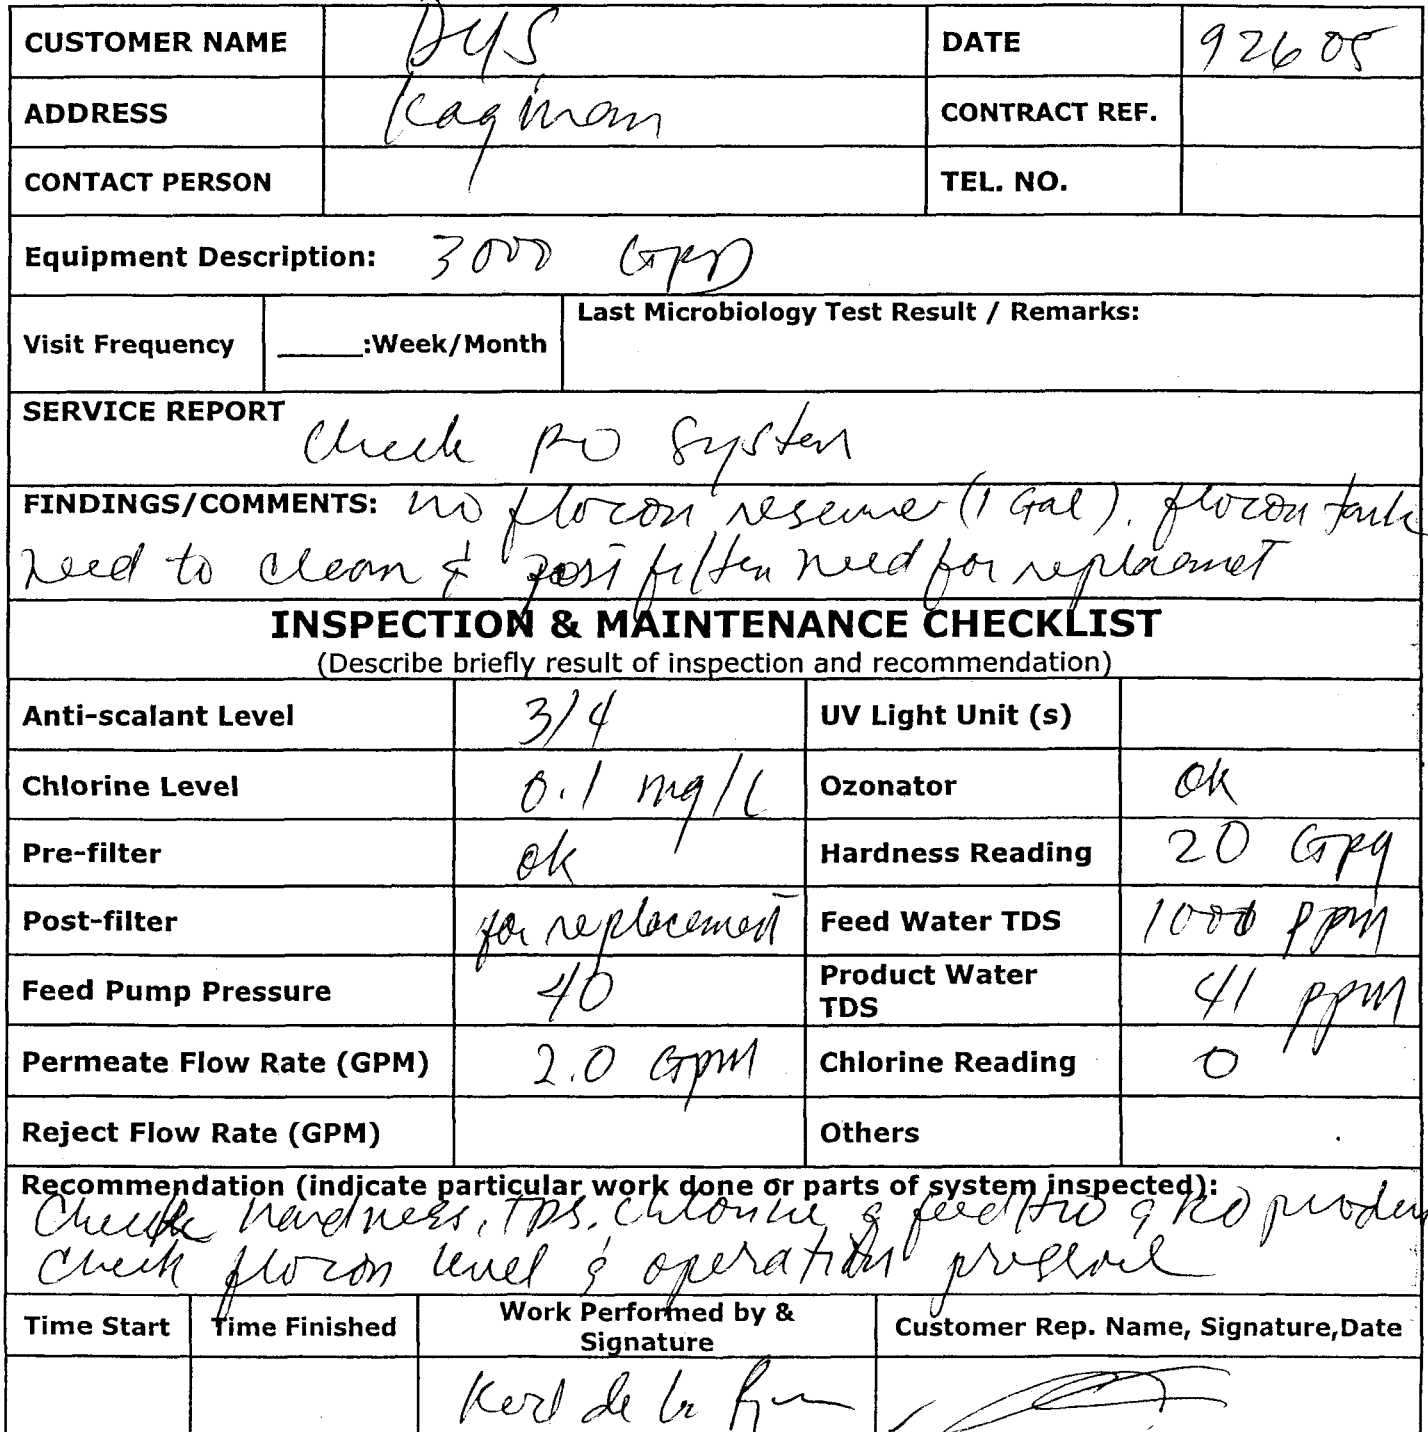 CUSTOMER NAME DYS DATE 92605
ADDRESS Kagman CONTRACT REF.
CONTACT PERSON TEL. NO.
Equipment Description: 3000 GPD
Visit Frequency ______:Week/Month Last Microbiology Test Result / Remarks:
SERVICE REPORT Check RO System
FINDINGS/COMMENTS: no flocon (1 Gal). flocon tank
need to clean & post filter need for replacemet
INSPECTION & MAINTENANCE CHECKLIST
(Describe briefly result of inspection and recommendation)
Anti-scalant Level 3/4 UV Light Unit (s)
Chlorine Level 0.1 mg/L Ozonator ok
Pre-filter ok Hardness Reading 20 Gpg
Post-filter for replacement Feed Water TDS 1000 ppm
Feed Pump Pressure 40 Product Water TDS 41 ppm
Permeate Flow Rate (GPM) 2.0 Gpm Chlorine Reading 0
Reject Flow Rate (GPM) Others
Recommendation (indicate particular work done or parts of system inspected):
Check hardness, TDS, chlorine & feed & RO
Check flocon level & operation
Time Start Time Finished Work Performed by & Signature Customer Rep. Name, Signature,Date
de la